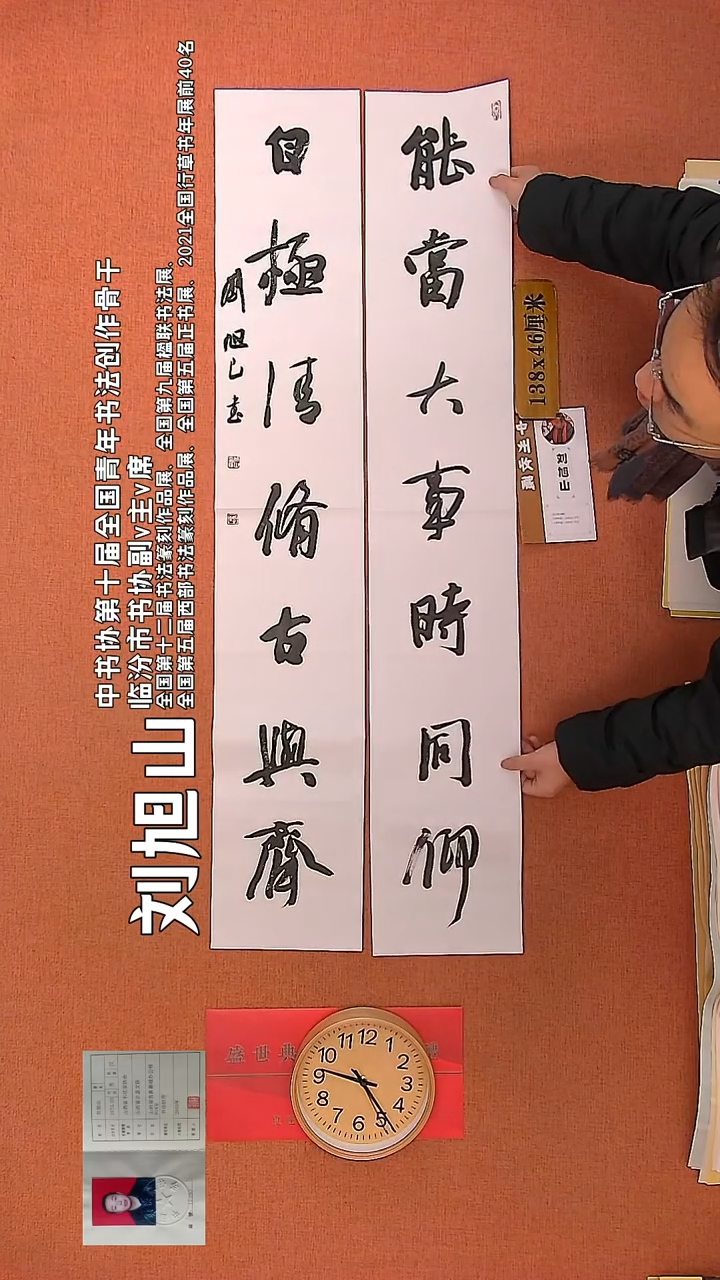 能當大事時同仰
自極清脩古與齊
旭山書
中书协第十届全国青年书法创作骨干
临汾市书协副v主v席
全国第十二届书法篆刻作品展、全国第九届楹联书法展、
全国第五届西部书法篆刻作品展、全国第五届正书展、2021全国行草书年展前40名
刘旭山
138x46厘米
刘旭山
盛世典
12
1
2
3
4
5
6
7
8
9
10
11